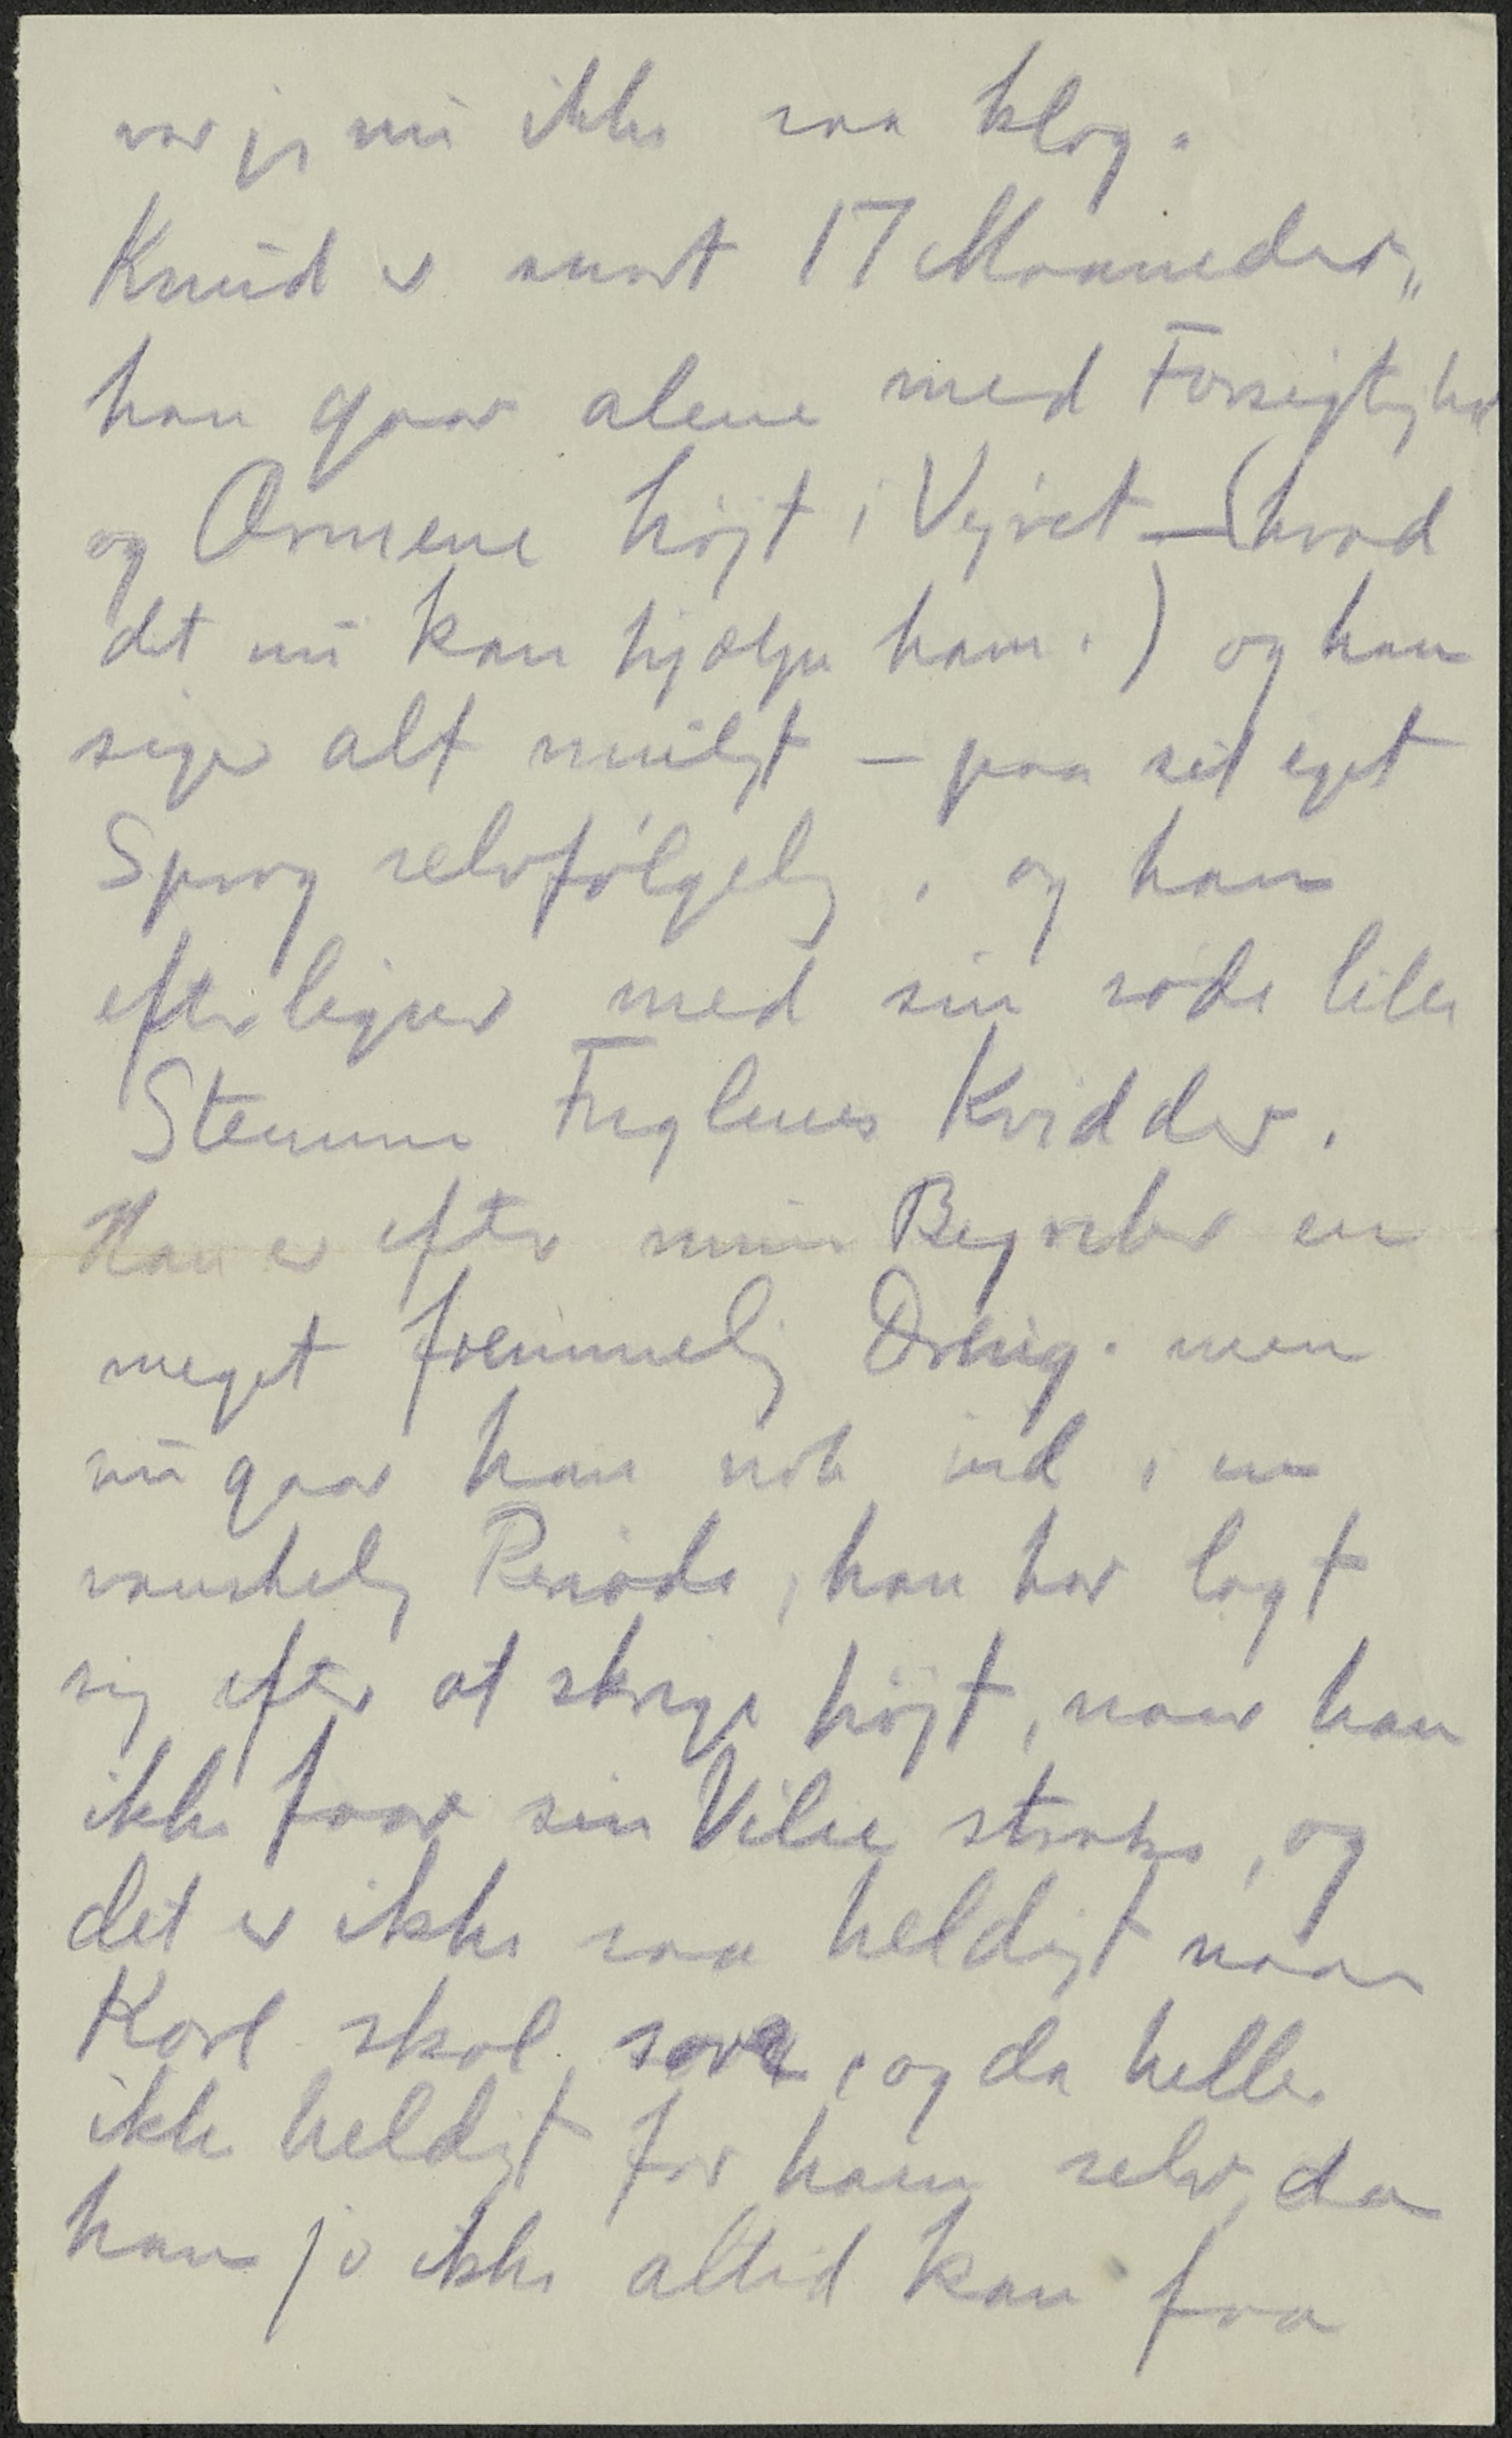 var jeg nu ikke saa klog.
Knud er snart 17 Maaneder,,
han gaar alene med Forsigtighed
og Armene højt i Vejret – (hvad
det nu kan hjælpe ham.) og han
siger alt muligt – paa sit eget
Sprog selvfølgelig, og han
efterligner med sin søde lille
Stemme Fuglenes Kvidder.
Han er efter mine Begreber en
meget fremmelig Dreng. men
nu gaar han nok ind i en
vanskelig Periode, han har lagt
sig efter at skrige højt, naar han
ikke faar sin Vilie straks, og
det er ikke saa heldigt naar
Karl skal sove, og da heller
ikke heldigt for ham selv, da
han jo ikke altid kan faa